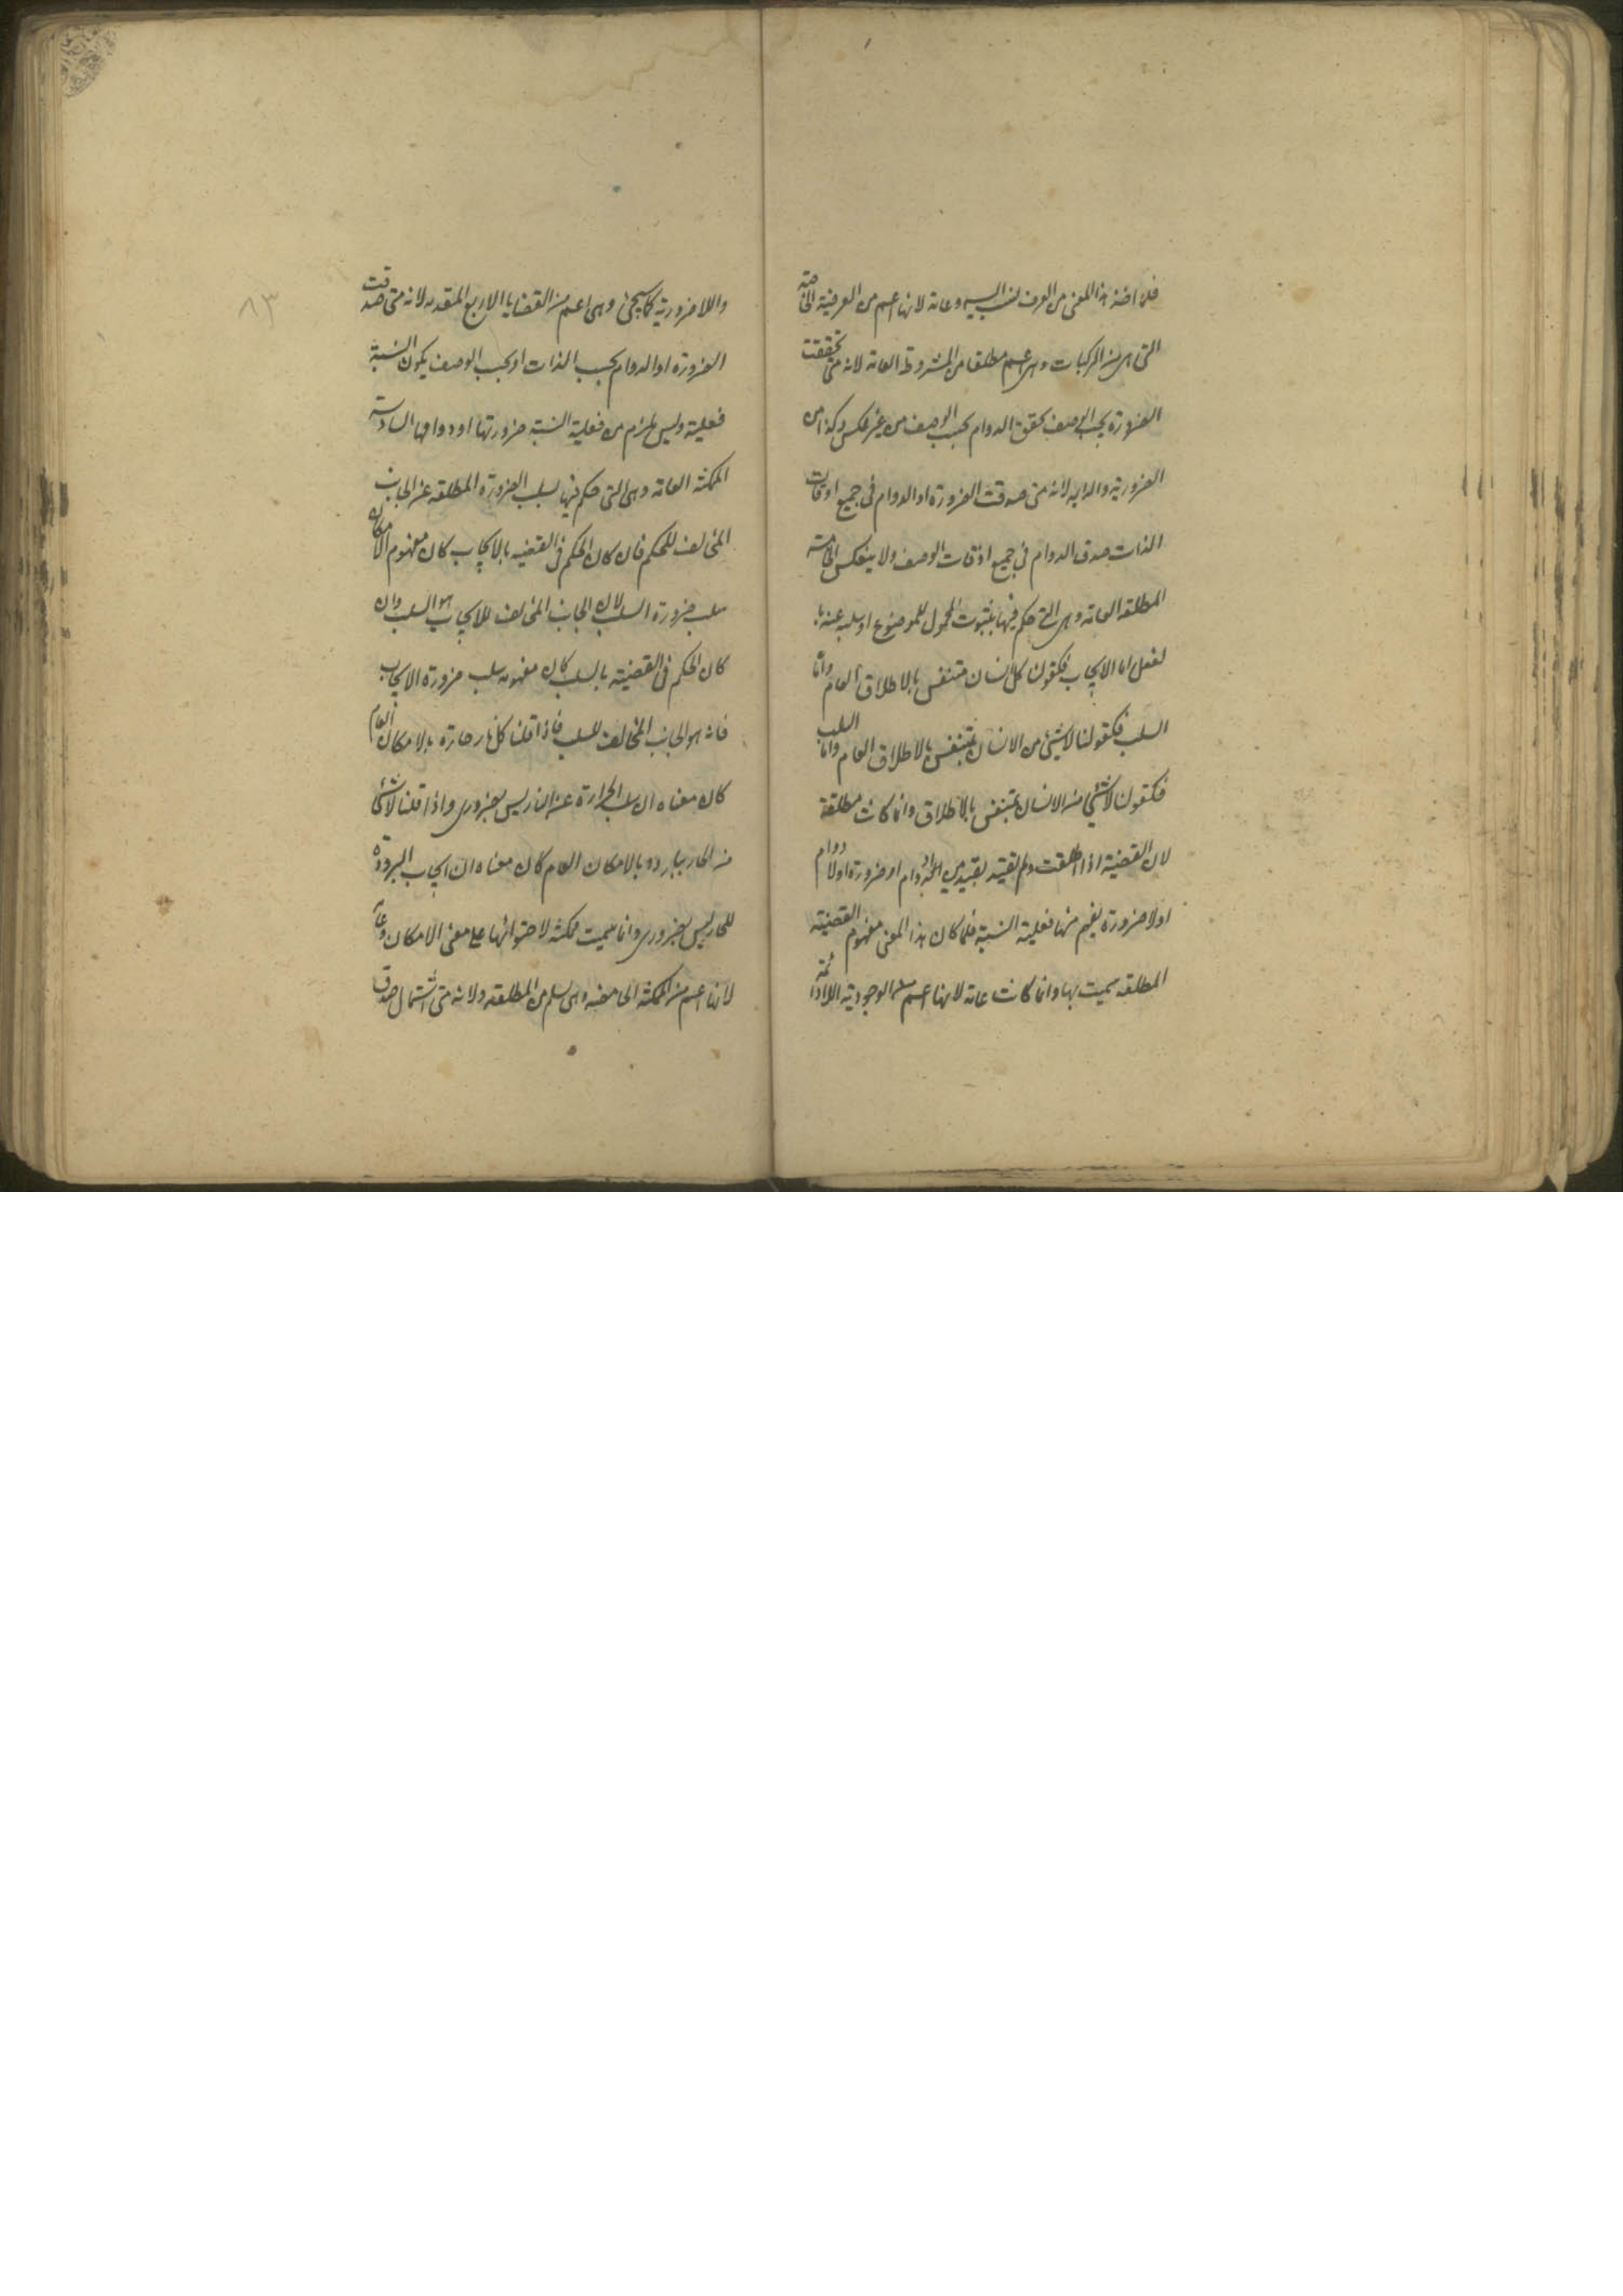 فلما اخذ هذا المعنى من العرف نسب اليه وعامة لانها اعم من العرفية الخاصة
التى هى من المركبات وهى اعم مطلقا من المشروطة العامة لانه متى تحققت
الضرورة بحسب الوصف تحقق الدوام بحسب الوصف من غير عكس وكذا من
الضرورية والدايمه لانه متى صدقت الضرورة او الدوام فى جميع اوقات
الذات صدق الدوام فى جميع اوقات الوصف ولا ينعكس الخامسة
المطلقه العامة وهى التى حكم فيها بثبوت المحمول للموضوع او سلبه عنه با
لفعل اما الايجاب فكقولنا كل انسان متنفس بالاطلاق العام واما
السلب فكقولنا لا شيئ من الانسان بمتنفس بالاطلاق العام واما السلب
فكقولنا لا شيئ من الانسان بمتنفس بالاطلاق وانما كانت مطلقة
لان القضية اذا اطلقت ولم تقيد بقيد من دوام او ضرورة او لا دوام
او لا ضرورة يفهم منها فعلية النسبة فلما كان هذا المعنى مفهوم القضية
المطلقه سميت بها وانما كانت عامة لانها اعم من الوجودية اللادائمة
٨٣
واللاضرورية كما سيجئ وهى اعم من القضايا الاربع المتقدمه لانه متى صدقت
الضرورة او الدوام بحسب الذات او بحسب الوصف يكون النسبة
فعلية وليس يلزم من فعلية النسبة ضرورتها او دوامها السادسة
الممكنة العامة وهى التى حكم فيها بسلب الضرورة المطلقه عن الجانب
المخالف للحكم فان كان الحكم فى القضيه بالايجاب كان مفهوم الامكان
سلب ضرورة السلب لان الجانب المخالف للايجاب هو السلب وان
كان الحكم فى القضية بالسلب كان مفهومه سلب ضرورة الايجاب
فانه هو الجانب المخالف للسلب فاذا قلنا كل نار حارة بالامكان العام
كان معناه ان سلب الحرارة عن النار ليس بضرورى واذا قلنا لا شئ
من الحار ببارد بالامكان العام كان معناه ان ايجاب البرودة
للحار ليس بضرورى وانما سميت ممكنة لاحتوائها على معنى الامكان وعامة
لانها اعم من الممكنة الخاصه وهى اعم من المطلقه ولانه متى صدق